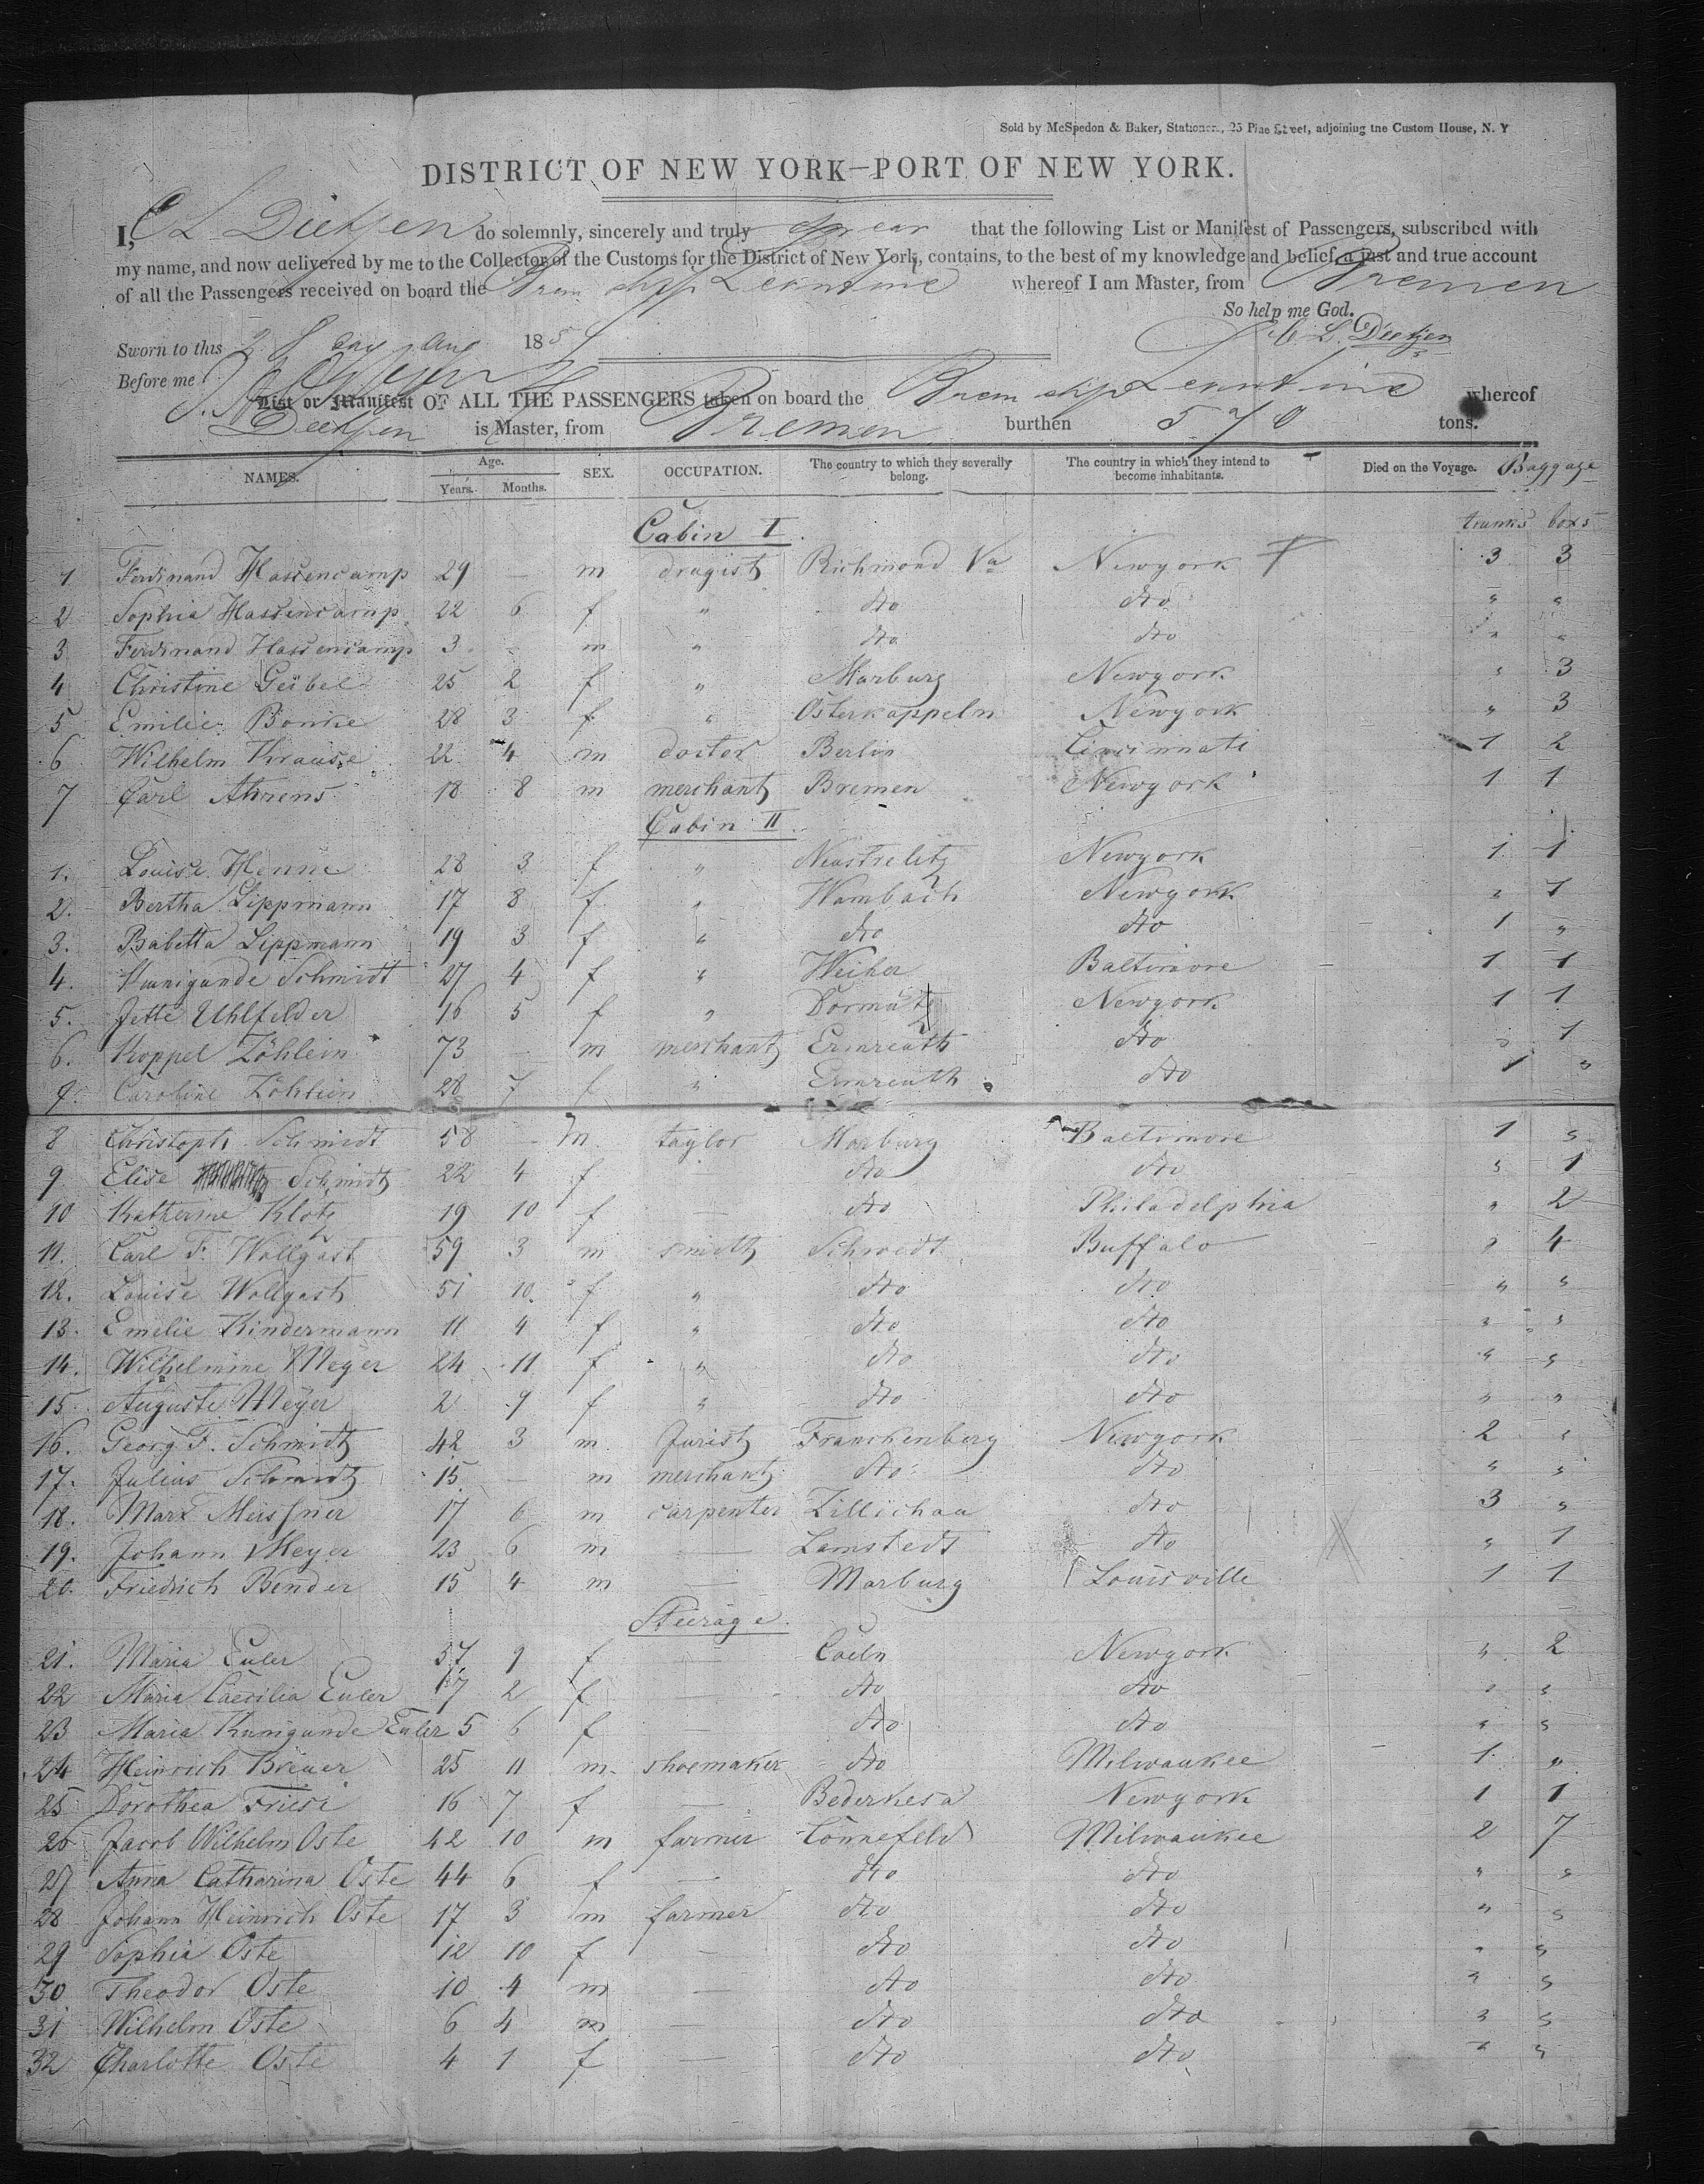 Sold by McSpedon & Baker, Stationers, 25 Pine Street, adjoining the Custom House, N. Y
DISTRICT OF NEW YORK—PORT OF NEW YORK.
I, C L Dietjen do solemnly, sincerely and truly swear that the following List or Manifest of Passengers, subscribed with
my name, and now delivered by me to the Collector of the Customs for the District of New York, contains, to the best of my knowledge and belief, a just and true account
of all the Passengers received on board the Brem ship Leontine whereof I am Master, from Bremen
So help me God.
Sworn to this 28 day Aug 185 C. L. Dietjen
Before me
List or Manifest OF ALL THE PASSENGERS taken on board the Brem ship Leontine whereof
Dietjen is Master, from Bremen burthen 570 tons.
NAMES. Age. Years. Months. SEX. OCCUPATION. The country to which they severally belong. The country in which they intend to become inhabitants. Died on the Voyage. Baggage
Cabin I. trunks boxs
1 Ferdinand Hassencamp 29 — m drugist Richmond Va Newyork 3 3
2 Sophia Hassencamp 22 6 f " dto dto " "
3 Ferdinand Hassencamp 3 - m " dto dto " "
4 Christine Geibel 25 2 f " Marburg Newyork " 3
5 Emilie 28 3 f " Osterkappeln Newyork " 3
6 Wilhelm Krause 22 4 m doctor Berlin Cincinnati 1 2
7 Carl Ahrens 18 8 m merchant Bremen Newyork 1 1
Cabin II.
1. Louise Henne 28 3 f " Neustrelitz Newyork 1 1
2. Bertha Lippmann 17 8 f " Wambach Newyork " 1
3. Babetta Lippmann 19 3 f " dto dto 1 "
4. Kunigunde Schmidt 27 4 f " Weiher Baltimore 1 1
5. Jette Uhlfelder 16 5 f " Newyork 1 1
6. Koppel Zöhlein 73 — m merchant Ermreuth dto " 1
7. Caroline Zöhlein 28 7 f " Ermreuth dto 1 "
8 Christoph Schmidt 58 — m taylor Marburg Baltimore 1 "
9 Elise Schmidt 22 4 f — dto dto " 1
10 Katherine Klotz 19 10 f — dto Philadelphia " 2
11. Carl F. Wollgast 59 3 m smidth Schwedt Buffalo " 4
12. Louise Wollgast 51 10 f " dto dto " "
13. Emelie Kindermann 11 4 f " dto dto " "
14. Wilhelmine Meyer 24 11 f " dto dto " "
15 Auguste Meyer 2 9 f " dto dto " "
16. Georg F. Schmidt 42 3 m. Jurist Franckenberg Newyork 2 "
17. Julius Schmidt 15 — m merchant dto dto " "
18. Marx Meissner 17 6 m carpenter Zillichau dto 3 "
19. Johann Meyer 23 6 m — Lamstedt dto " 1
20. Friedrich Bender 15 4 m — Marburg Louisville 1 1
Steerage.
21. Maria Euler 57 9 f — Coeln Newyork " 2
22 Maria Caecilia Euler 17 2 f — dto dto " "
23 Maria Kunigunde Euler 5 6 f — dto dto " "
24 Heinrich Breuer 25 11 m. shoemaker dto Milwaukee 1 "
25 Dorothea Friese 16 7 f — Bederkesa Newyork 1 1
26 Jacob Wilhelm Oste 42 10 m farmer Milwaukee 2 7
27 Anna Catharina Oste 44 6 f — dto dto " "
28 Johann Heinrich Oste 17 3 m farmer dto dto " "
29 Sophia Oste 12 10 f — dto dto " "
30 Theodor Oste 10 4 m — dto dto " "
31 Wilhelm Oste 6 4 m — dto dto " "
32 Charlotte Oste 4 1 f — dto dto " "